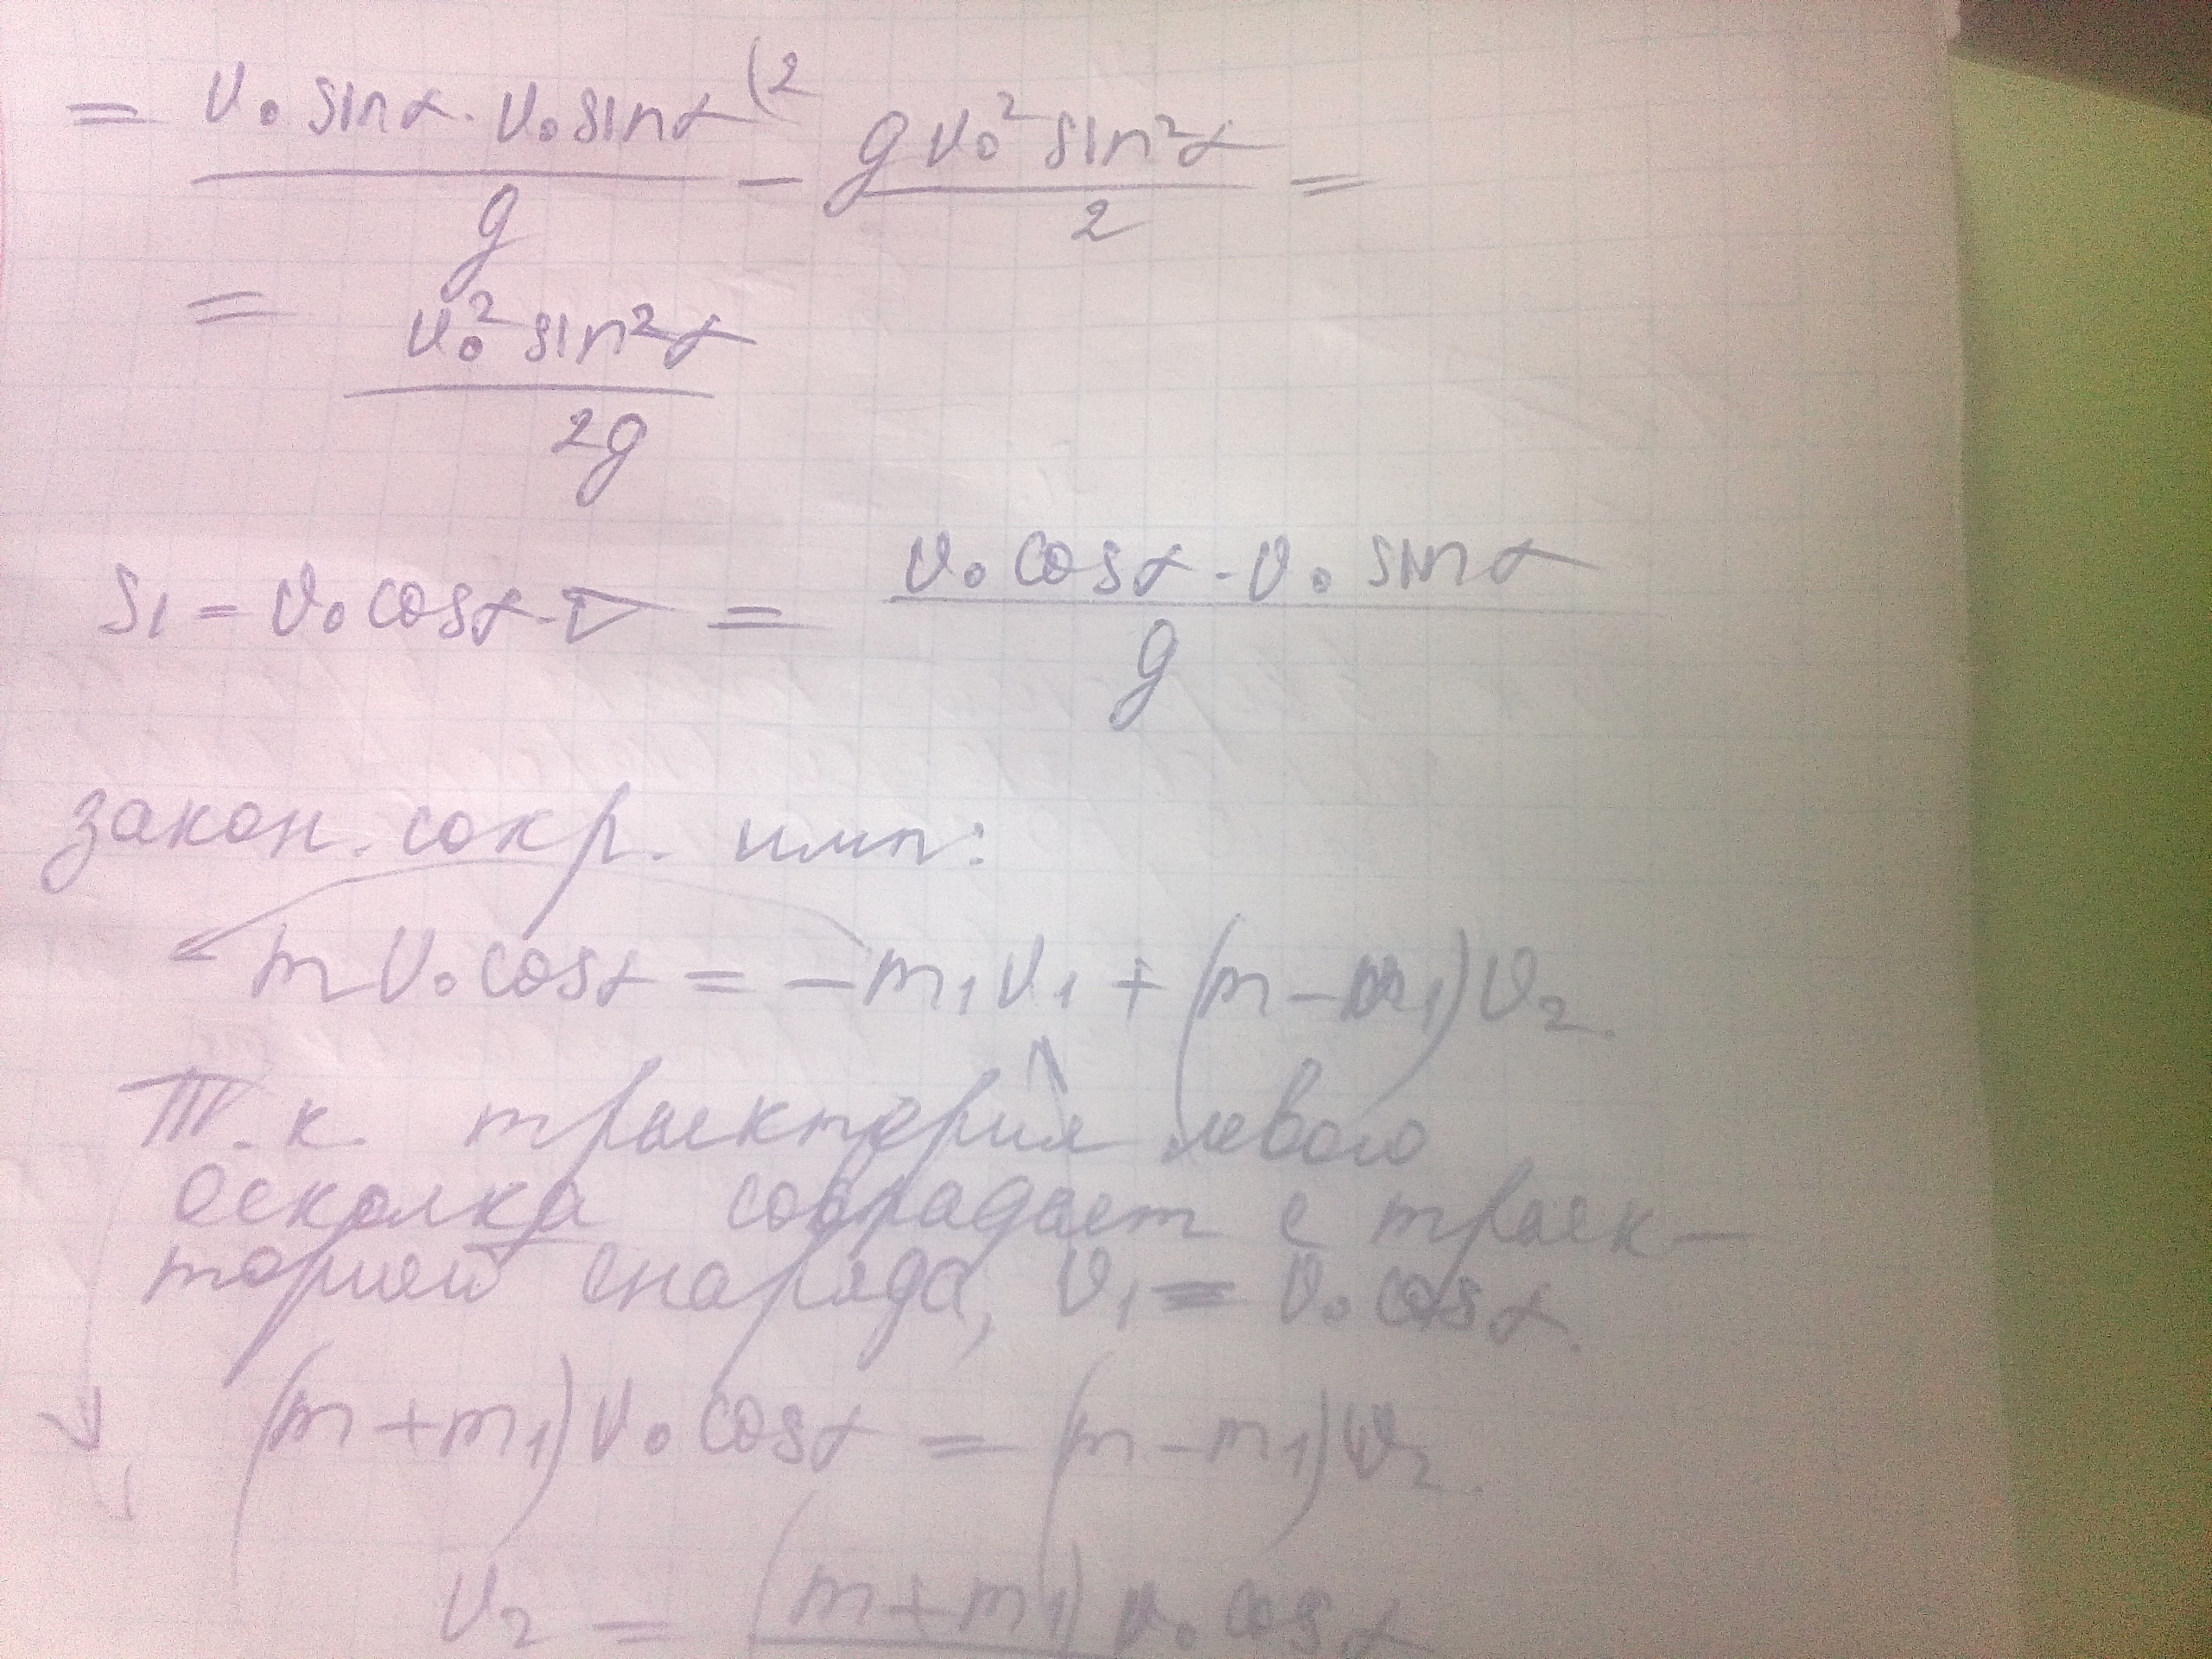 = v₀ sinα · v₀ sinα (2 / g − g v₀² sin²α / 2 =
= v₀² sin²α / 2g
S₁ = v₀ cosα · = v₀ cosα · v₀ sinα / g
закон. сохр. имп:
m v₀ cosα = − m₁ v₁ + (m − m₁) v₂.
Т. к. траектория левого
осколка совпадает с траек-
торией снаряда, v₁ = v₀ cosα.
(m + m₁) v₀ cosα = (m − m₁) v₂.
v₂ = (m + m₁) v₀ cosα